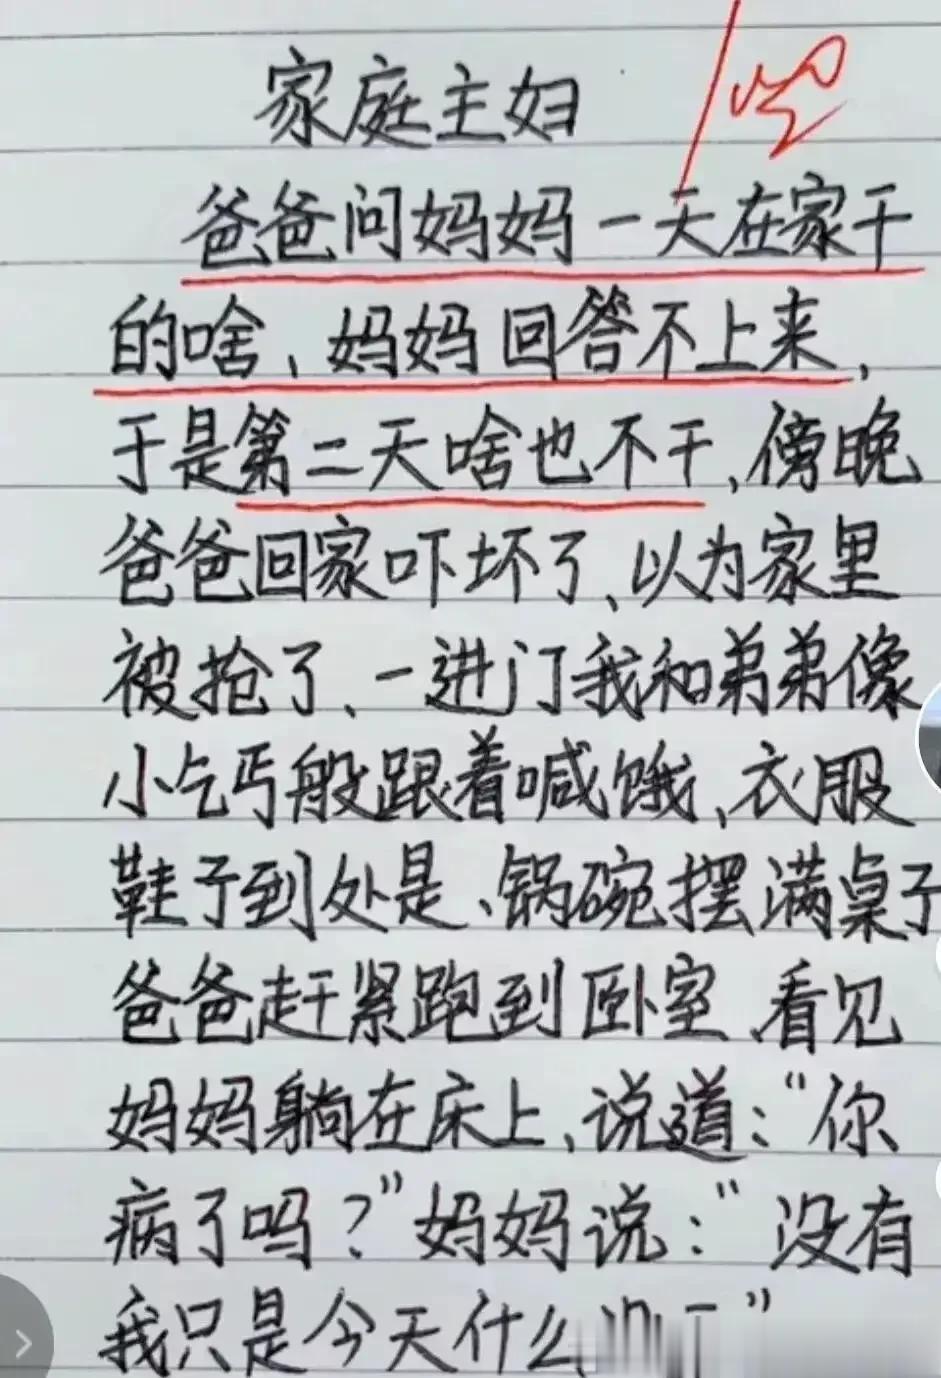 家庭主妇
爸爸问妈妈一天在家干
的啥、妈妈回答不上来,
于是第二天啥也不干、傍晚
爸爸回家吓坏了、以为家里
被抢了、一进门我和弟弟像
小乞丐般跟着喊饿、衣服
鞋子到处是、锅碗摆满桌子
爸爸赶紧跑到卧室、看见
妈妈躺在床上、说道:“你
病了吗?”妈妈说:“没有
我只是今天什么"